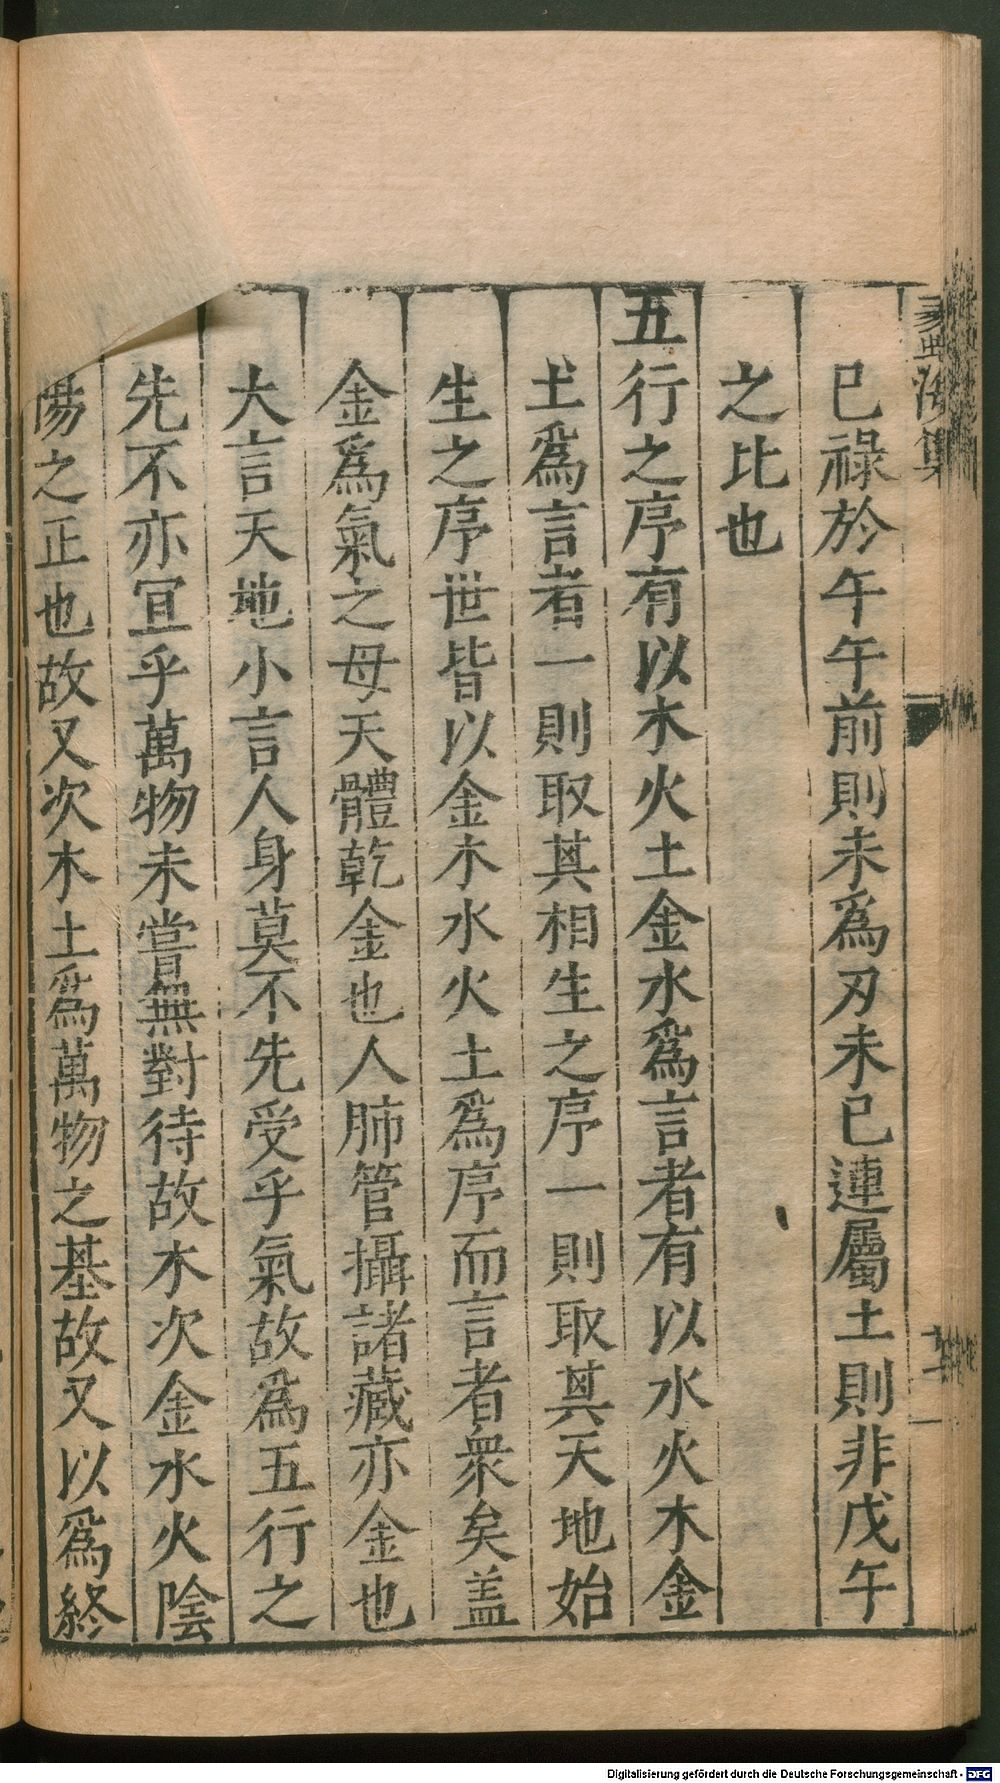 己祿於午午前則未爲刃未己連屬土則非戊午
之比也
五行之序有以木火土金水爲言者有以水火木金
土爲言者一則取其相生之序一則取其天地始
生之序世皆以金木水火土爲序而言者衆矣盖
金爲氣之母天體乾金也人肺管攝諸藏亦金也
大言天地小言人身莫不先受乎氣故爲五行之
先不亦冝乎萬物未嘗無對待故木次金水火陰
陽之正也故又次木土爲萬物之基故又以爲終
Digitalisierung gefördert durch die Deutsche Forschungsgemeinschaft - DFG